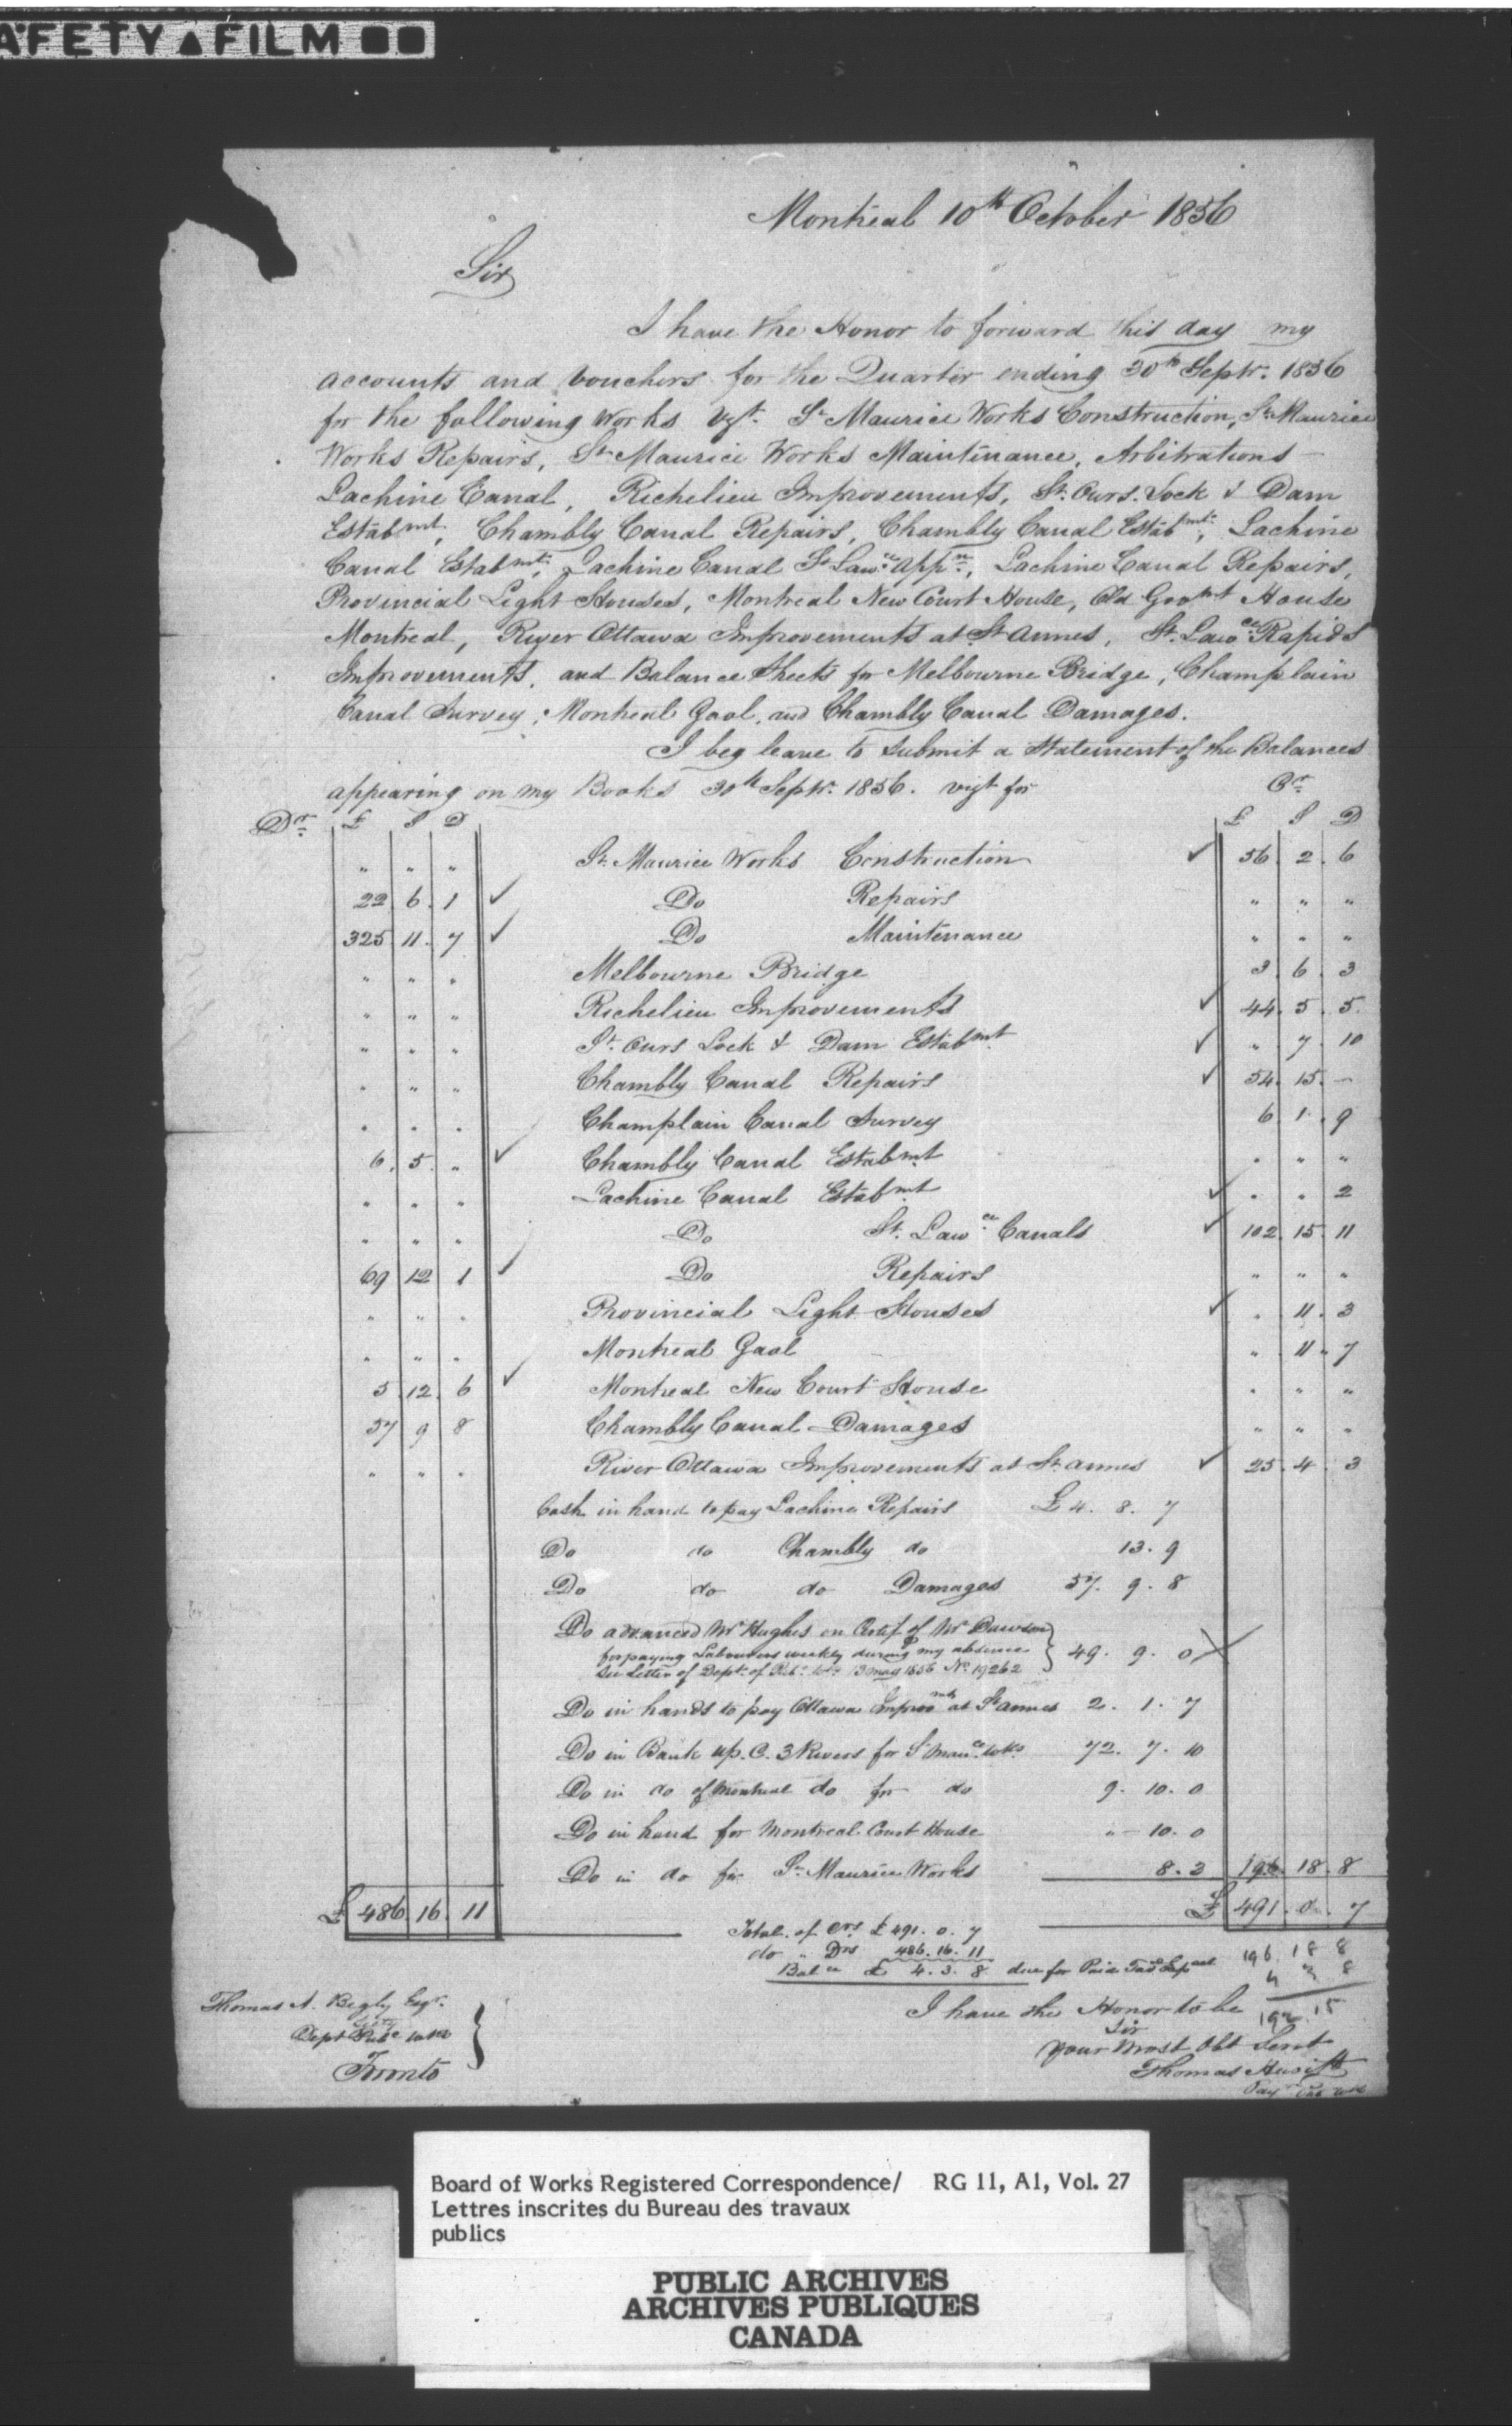 AFETY FILM
Montreal 10th October 1856
Sir
I have the Honor to forward this day my
accounts and vouchers for the Quarter ending 30th Septr. 1856
for the following Works vizt. St Maurice Works Construction, St Maurice
Works Repairs, St Maurice Works Maintenance, Arbitrations
Lachine Canal, Richelieu Improvements, St. Ours Lock & Dam
Estabmt, Chambly Canal Repairs, Chambly Canal Estabmt, Lachine
Canal Estabmt, Lachine Canal St Lawce Appn, Lachine Canal Repairs,
Provincial Light Houses, Montreal New Court House, Old Govmt House
Montreal, River Ottawa Improvements at St Annes, St. Lawce Rapids
Improvements, and Balance Sheets for Melbourne Bridge, Champlain
Canal Survey, Montreal Gaol, and Chambly Canal Damages.
I beg leave to submit a Statement of the Balances
appearing on my Books 30th Septr. 1856. vizt for Cr
Dr £ S D £ S D
" " " St. Maurice Works Construction ✓ 56. 2. 6
22. 6. 1 ✓ Do Repairs " " "
325 11. 7 ✓ Do Maintenance " " "
" " " Melbourne Bridge 3. 6. 3
" " " Richelieu Improvements ✓ 44. 5. 5.
" " " St. Ours Lock & Dam Estabmt ✓ " 7. 10
" " " Chambly Canal Repairs ✓ 54. 15. –
" " " Champlain Canal Survey 6 1. 9
6. 5. " ✓ Chambly Canal Estabmt " " "
" " " Lachine Canal Estabmt ✓ " " 2
" " " Do St. Lawce Canals ✓ 102. 15. 11
69 12 1 ✓ Do Repairs " " "
" " " Provincial Light Houses ✓ " 11. 3
" " " Montreal Gaol " 11. 7
5. 12. 6 ✓ Montreal New Court House " " "
57 9 8 Chambly Canal Damages " " "
" " " River Ottawa Improvements at St. Annes ✓ 25. 4. 3
Cash in hand to pay Lachine Repairs £ 4. 8. 7
Do do Chambly do 13. 9
Do do do Damages 57. 9. 8
Do advanced Mr Hughes on Certif of Mr Dawson
for paying Labourers weekly during my absence } 49. 9. 0 X
See Letter of Dept. of Pubc. Wks 13 May 1856 No. 19262
Do in hands to pay Ottawa Improvmts at St Annes 2. 1. 7
Do in Bank Up. C. 3 Rivers for St Mauce. Wks. 72. 7. 10
Do in do of Montreal do for do 9. 10. 0
Do in hand for Montreal Court House " – 10. 0
Do in do for St. Maurice Works 8. 3 196. 18. 8
£ 486. 16. 11 £ 491. 0. 7
Total of Crs £ 491. 0. 7
do " Drs 486. 16. 11 196. 18 8
Balce £ 4. 3. 8 due for 4 3 8
192. 15
I have the Honor to be
Sir
Your Most Obt Servt
Thomas Hewitt
Thomas A. Begly Esqr.
Secty
Dept Pubc Wks }
Toronto
Board of Works Registered Correspondence/ RG 11, A1, Vol. 27
Lettres inscrites du Bureau des travaux
publics
PUBLIC ARCHIVES
ARCHIVES PUBLIQUES
CANADA